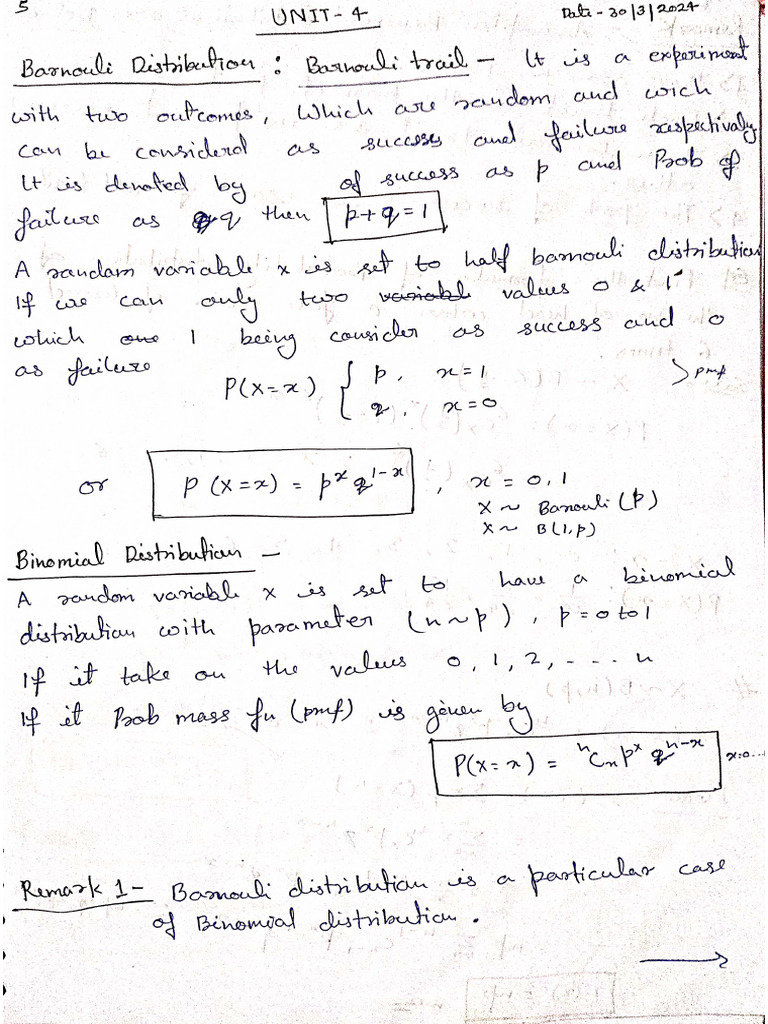 5
UNIT-4
Date-30/3/2024
Barnouli Distribution : Barnouli trail - It is a experiment
with two outcomes, Which are random and wich
can be considerd as success and failure respectivaly
It is denoted by of success as p and Prob of
failure as q then p+q=1
A random variable x is set to half barnouli distribution
If we can only two variabl values 0 & 1
which one 1 being consider as success and 0
as failure
P(X=x) { p, x=1
q, x=0 > pmf
or P(X=x) = p^x q^{1-x}, x = 0,1
X ~ Banouli (p)
X ~ B(1,p)
Binomial Distribution -
A random variable x is set to have a binomial
distribution with parameter (n~p), p=0 to 1
If it take on the values 0, 1, 2, - ... n
If it Prob mass fn (pmf) is given by
P(X=x) = ⁿCₓ p^x q^{n-x} x=0...
Remark 1- Barnouli distribution is a particular case
of Binomial distribution.